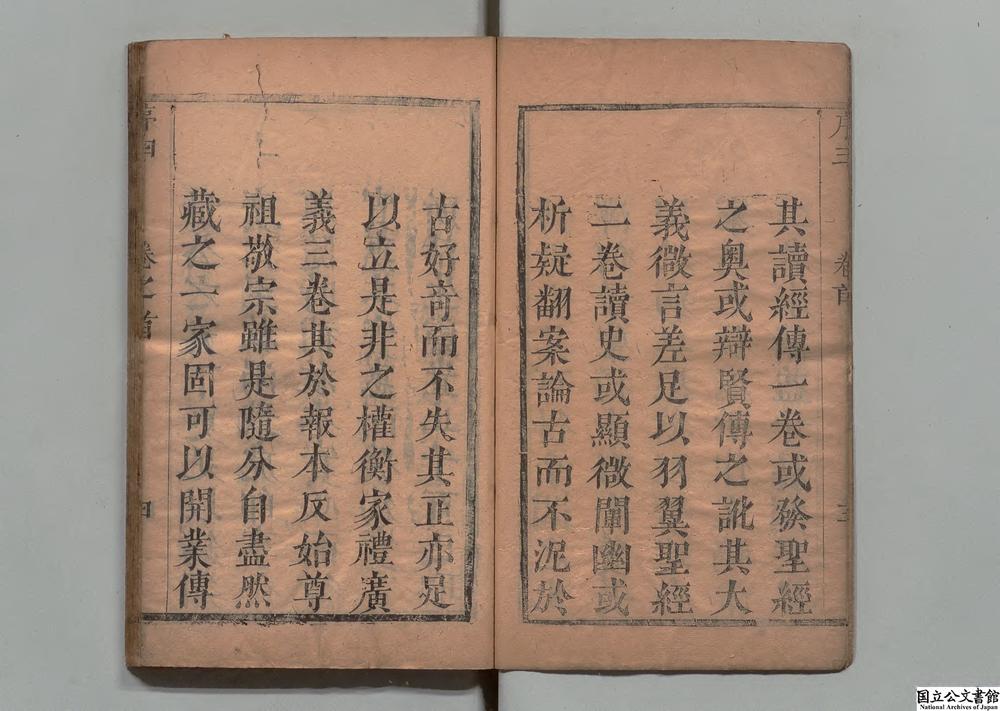 序三
卷首
三
其讀經傳一卷或發聖經
之奧或辯賢傳之訛其大
義微言差足以羽翼聖經
二卷讀史或顯微闡幽或
析疑翻案論古而不泥於
古好竒而不失其正亦足
以立是非之權衡家禮廣
義三卷其於報本反始尊
祖敬宗雖是隨分自盡然
藏之一家固可以開業傳
序四
卷之首
四
国立公文書館
National Archives of Japan